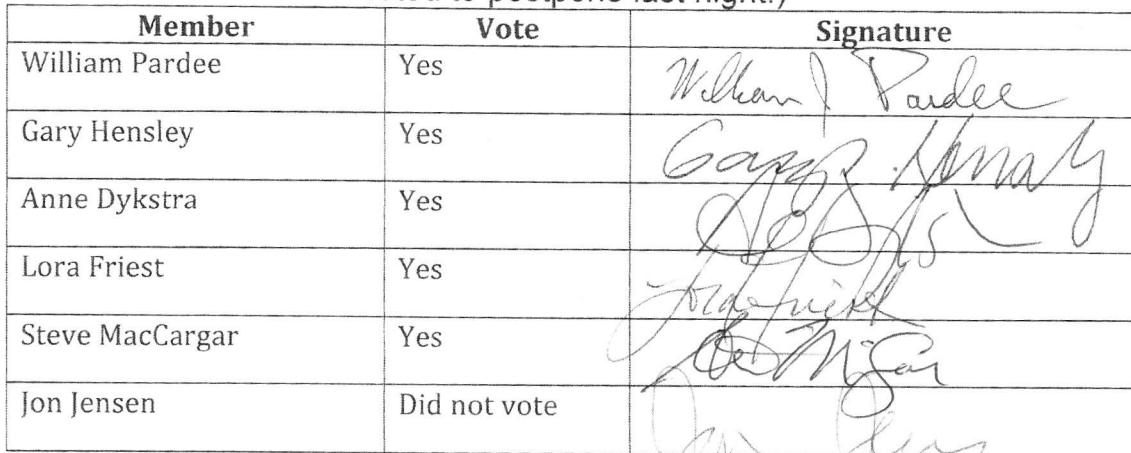 to postpone last night.)
Member Vote Signature
William Pardee Yes William J Pardee
Gary Hensley Yes
Anne Dykstra Yes
Lora Friest Yes Lora Friest
Steve MacCargar Yes
Jon Jensen Did not vote